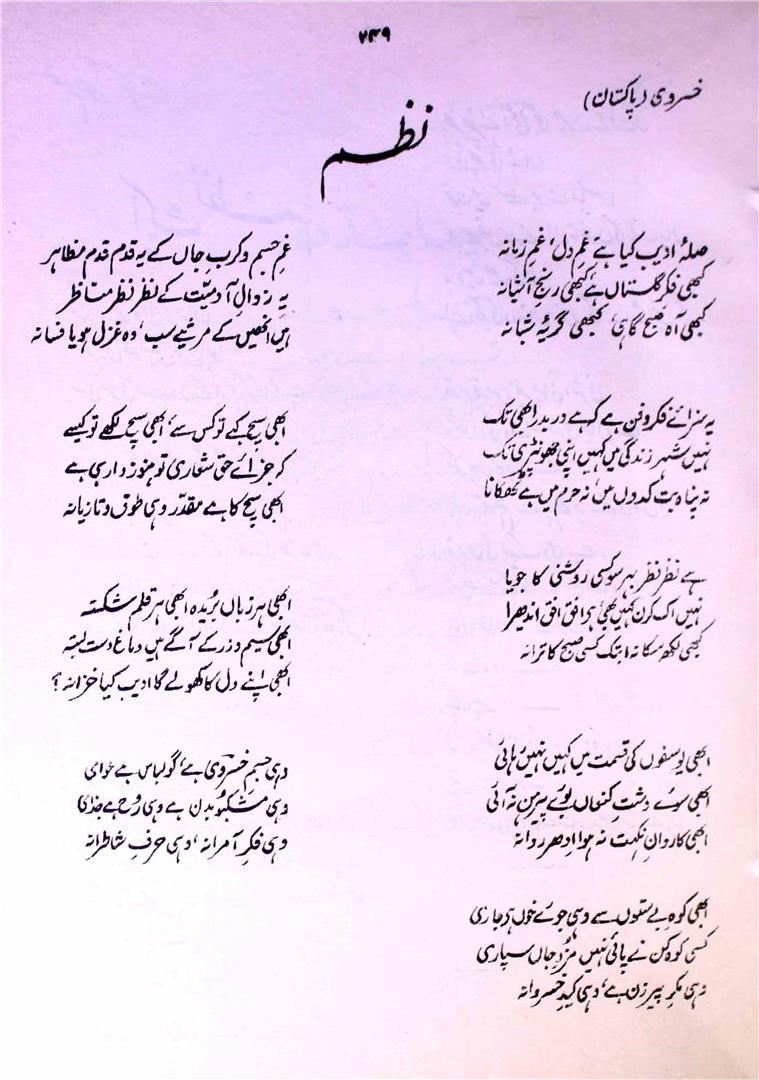 ۲۴۹
خسروی (پاکستان)
نظم
صلۂ ادیب کیا ہے غمِ دل، غمِ زمانہ
کبھی فکرِ گلستاں ہے کبھی رنجِ آشیانہ
کبھی آہ صبح گاہی، کبھی گریۂ شبانہ
یہ سزائے فکر و فن ہے کہ ہے دربدر ابھی تک
نہیں شہرِ زندگی میں کہیں اپنی جھونپڑی تک
نہ پناہ بت کدوں میں، نہ حرم میں ہے ٹھکانا
ہے نظر نظر بہر سو کسی روشنی کا جویا
نہیں اک کرن کہیں بھی ہے افق افق اندھیرا
کبھی لکھ سکا نہ ابتک کسی صبح کا ترانہ
ابھی یوسفوں کی قسمت میں کہیں نہیں رہائی
ابھی سوئے دشت کنعاں بوئے پیرہن نہ آئی
ابھی کاروانِ نکہت نہ ہوا ادھر روانہ
ابھی کوہِ بے ستوں سے وہی جوئے خوں ہے جاری
کسی کوہ کن نے پائی نہیں مزدِ جاں سپاری
وہی مکرِ پیرزن ہے، وہی کیدِ خسروانہ
غمِ جسم و کربِ جاں کے یہ قدم قدم مظاہر
یہ زوالِ آدمیّت کے نظر نظر مناظر
ہیں انھیں کے مرثیے سب، وہ غزل ہو یا فسانہ
ابھی سچ کہے تو کس سے، ابھی سچ لکھے تو کیسے
کہ جزائے حق شعاری تو ہنوز دار ہی ہے
ابھی سچ کا ہے مقدّر وہی طوق و تازیانہ
ابھی ہر زباں بُریدہ ابھی ہر قلم شکستہ
ابھی سیم و زر کے آگے ہیں دماغ دست بستہ
ابھی اپنے دل کا کھولے گا ادیب کیا خزانہ؟
وہی جسمِ خسروی ہے، گو لباس ہے عوامی
وہی مشکبو بدن ہے وہی روح ہے جذامی
وہی فکرِ آمرانہ، وہی حرفِ شاطرانہ